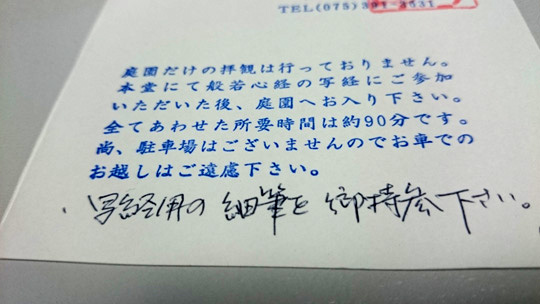 TEL(075)391-3631
庭園だけの拝観は行っておりません。
本堂にて般若心経の写経にご参加
いただいた後、庭園へお入り下さい。
全てあわせた所要時間は約90分です。
尚、駐車場はございませんのでお車での
お越しはご遠慮下さい。
・写経用の細筆を御持参下さい。